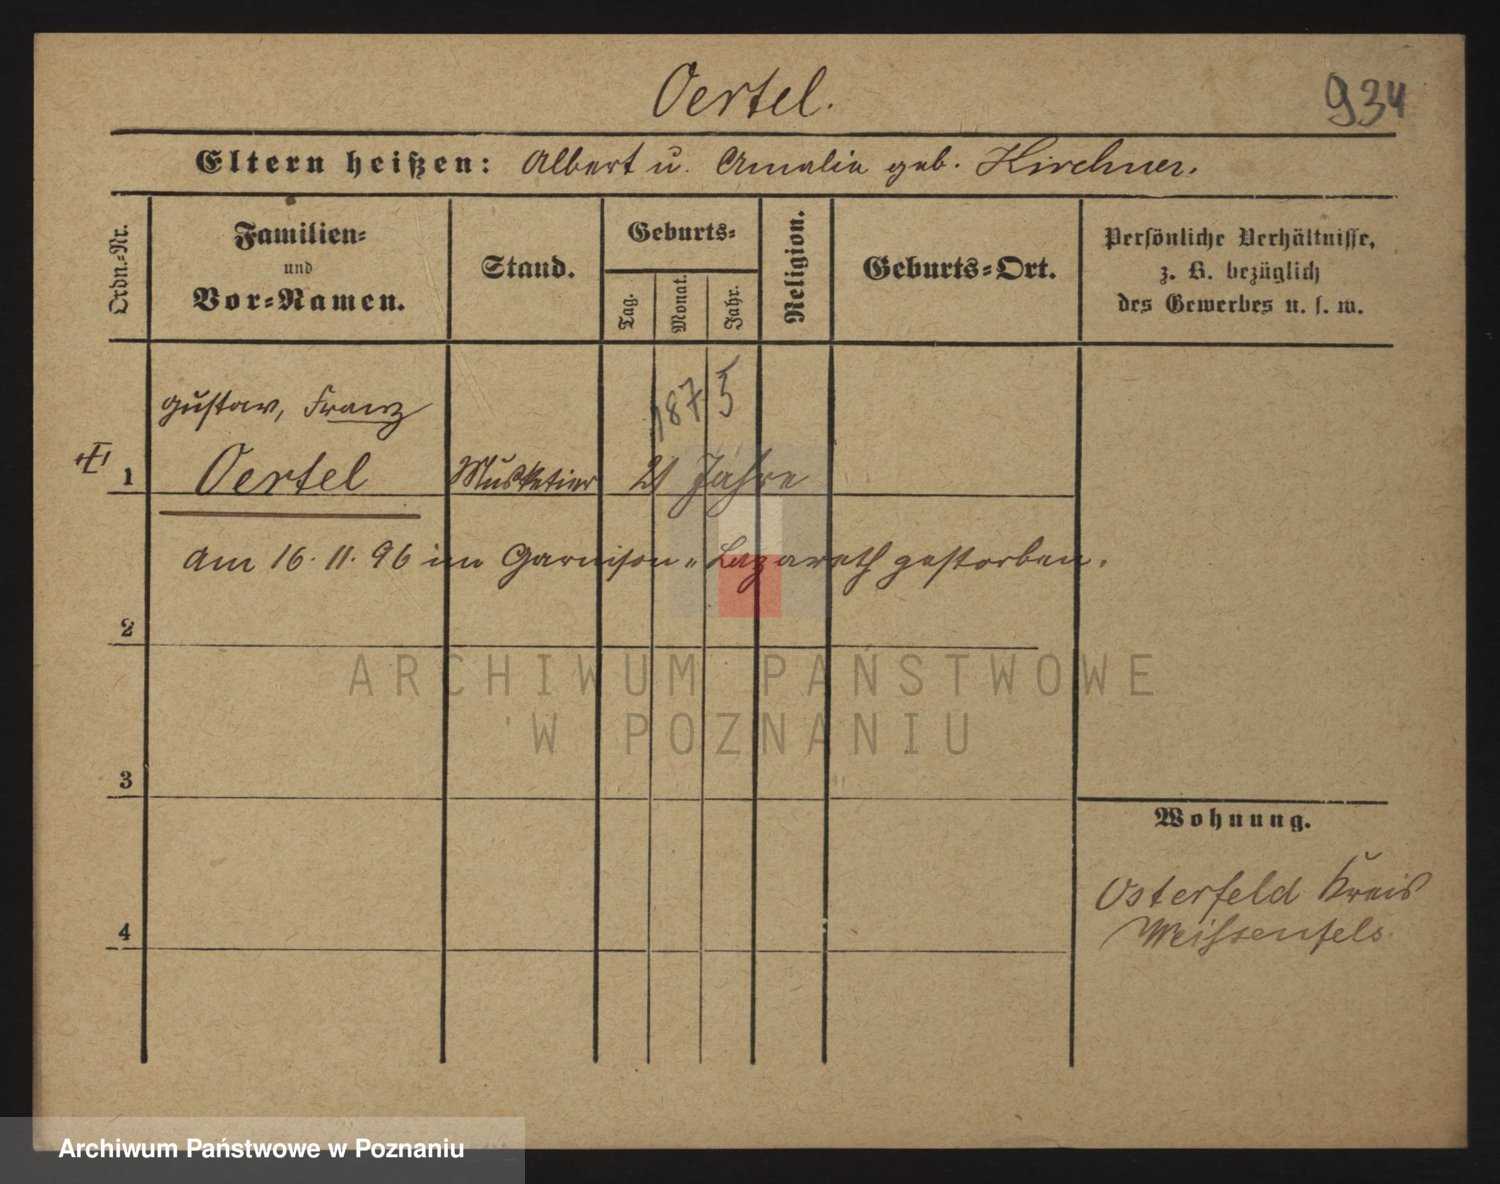 Oertel.
934
Eltern heißen: Albert u. Amalia geb. Kirchner.
Ordn.-Nr.
Familien-
und
Vor-Namen.
Stand.
Geburts-
Tag.
Monat.
Jahr.
Religion.
Geburts-Ort.
Persönliche Verhältnisse,
z. B. bezüglich
des Gewerbes u. s. w.
1875
Gustav, Franz
1 Oertel Musketier 21 Jahre
Am 16.11.96 im Garnison-Lazareth gestorben.
2
ARCHIWUM PAŃSTWOWE
W POZNANIU
3
Wohnung.
Osterfeld Kreis
Weißenfels.
4
Archiwum Państwowe w Poznaniu